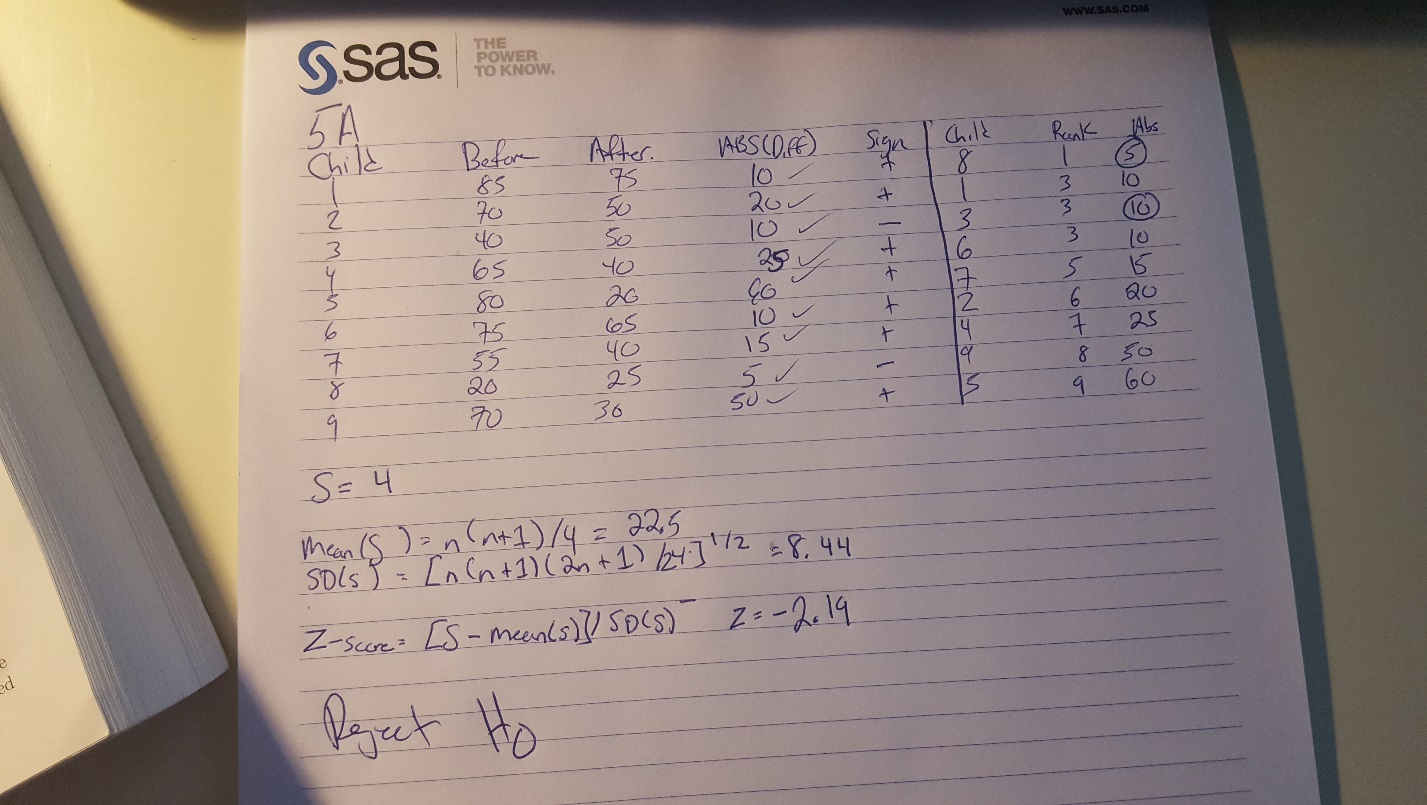 WWW.SAS.COM
sas. THE POWER TO KNOW.
5A
Child Before After. ABS(Diff) Sign Child Rank Abs
1 85 75 10 ✓ + 8 1 5
2 70 50 20 ✓ + 1 3 10
3 40 50 10 ✓ - 3 3 10
4 65 40 25 ✓ + 6 3 10
5 80 20 60 ✓ + 7 5 15
6 75 65 10 ✓ + 2 6 20
7 55 40 15 ✓ + 4 7 25
8 20 25 5 ✓ - 9 8 50
9 70 30 50 ✓ + 5 9 60
S= 4
mean(S) = n(n+1)/4 = 22.5
SD(s) = [n(n+1)(2n+1)/24]^1/2 = 8.44
Z-score= [S - mean(s)]/SD(s) Z=-2.19
Reject H0
e
ed